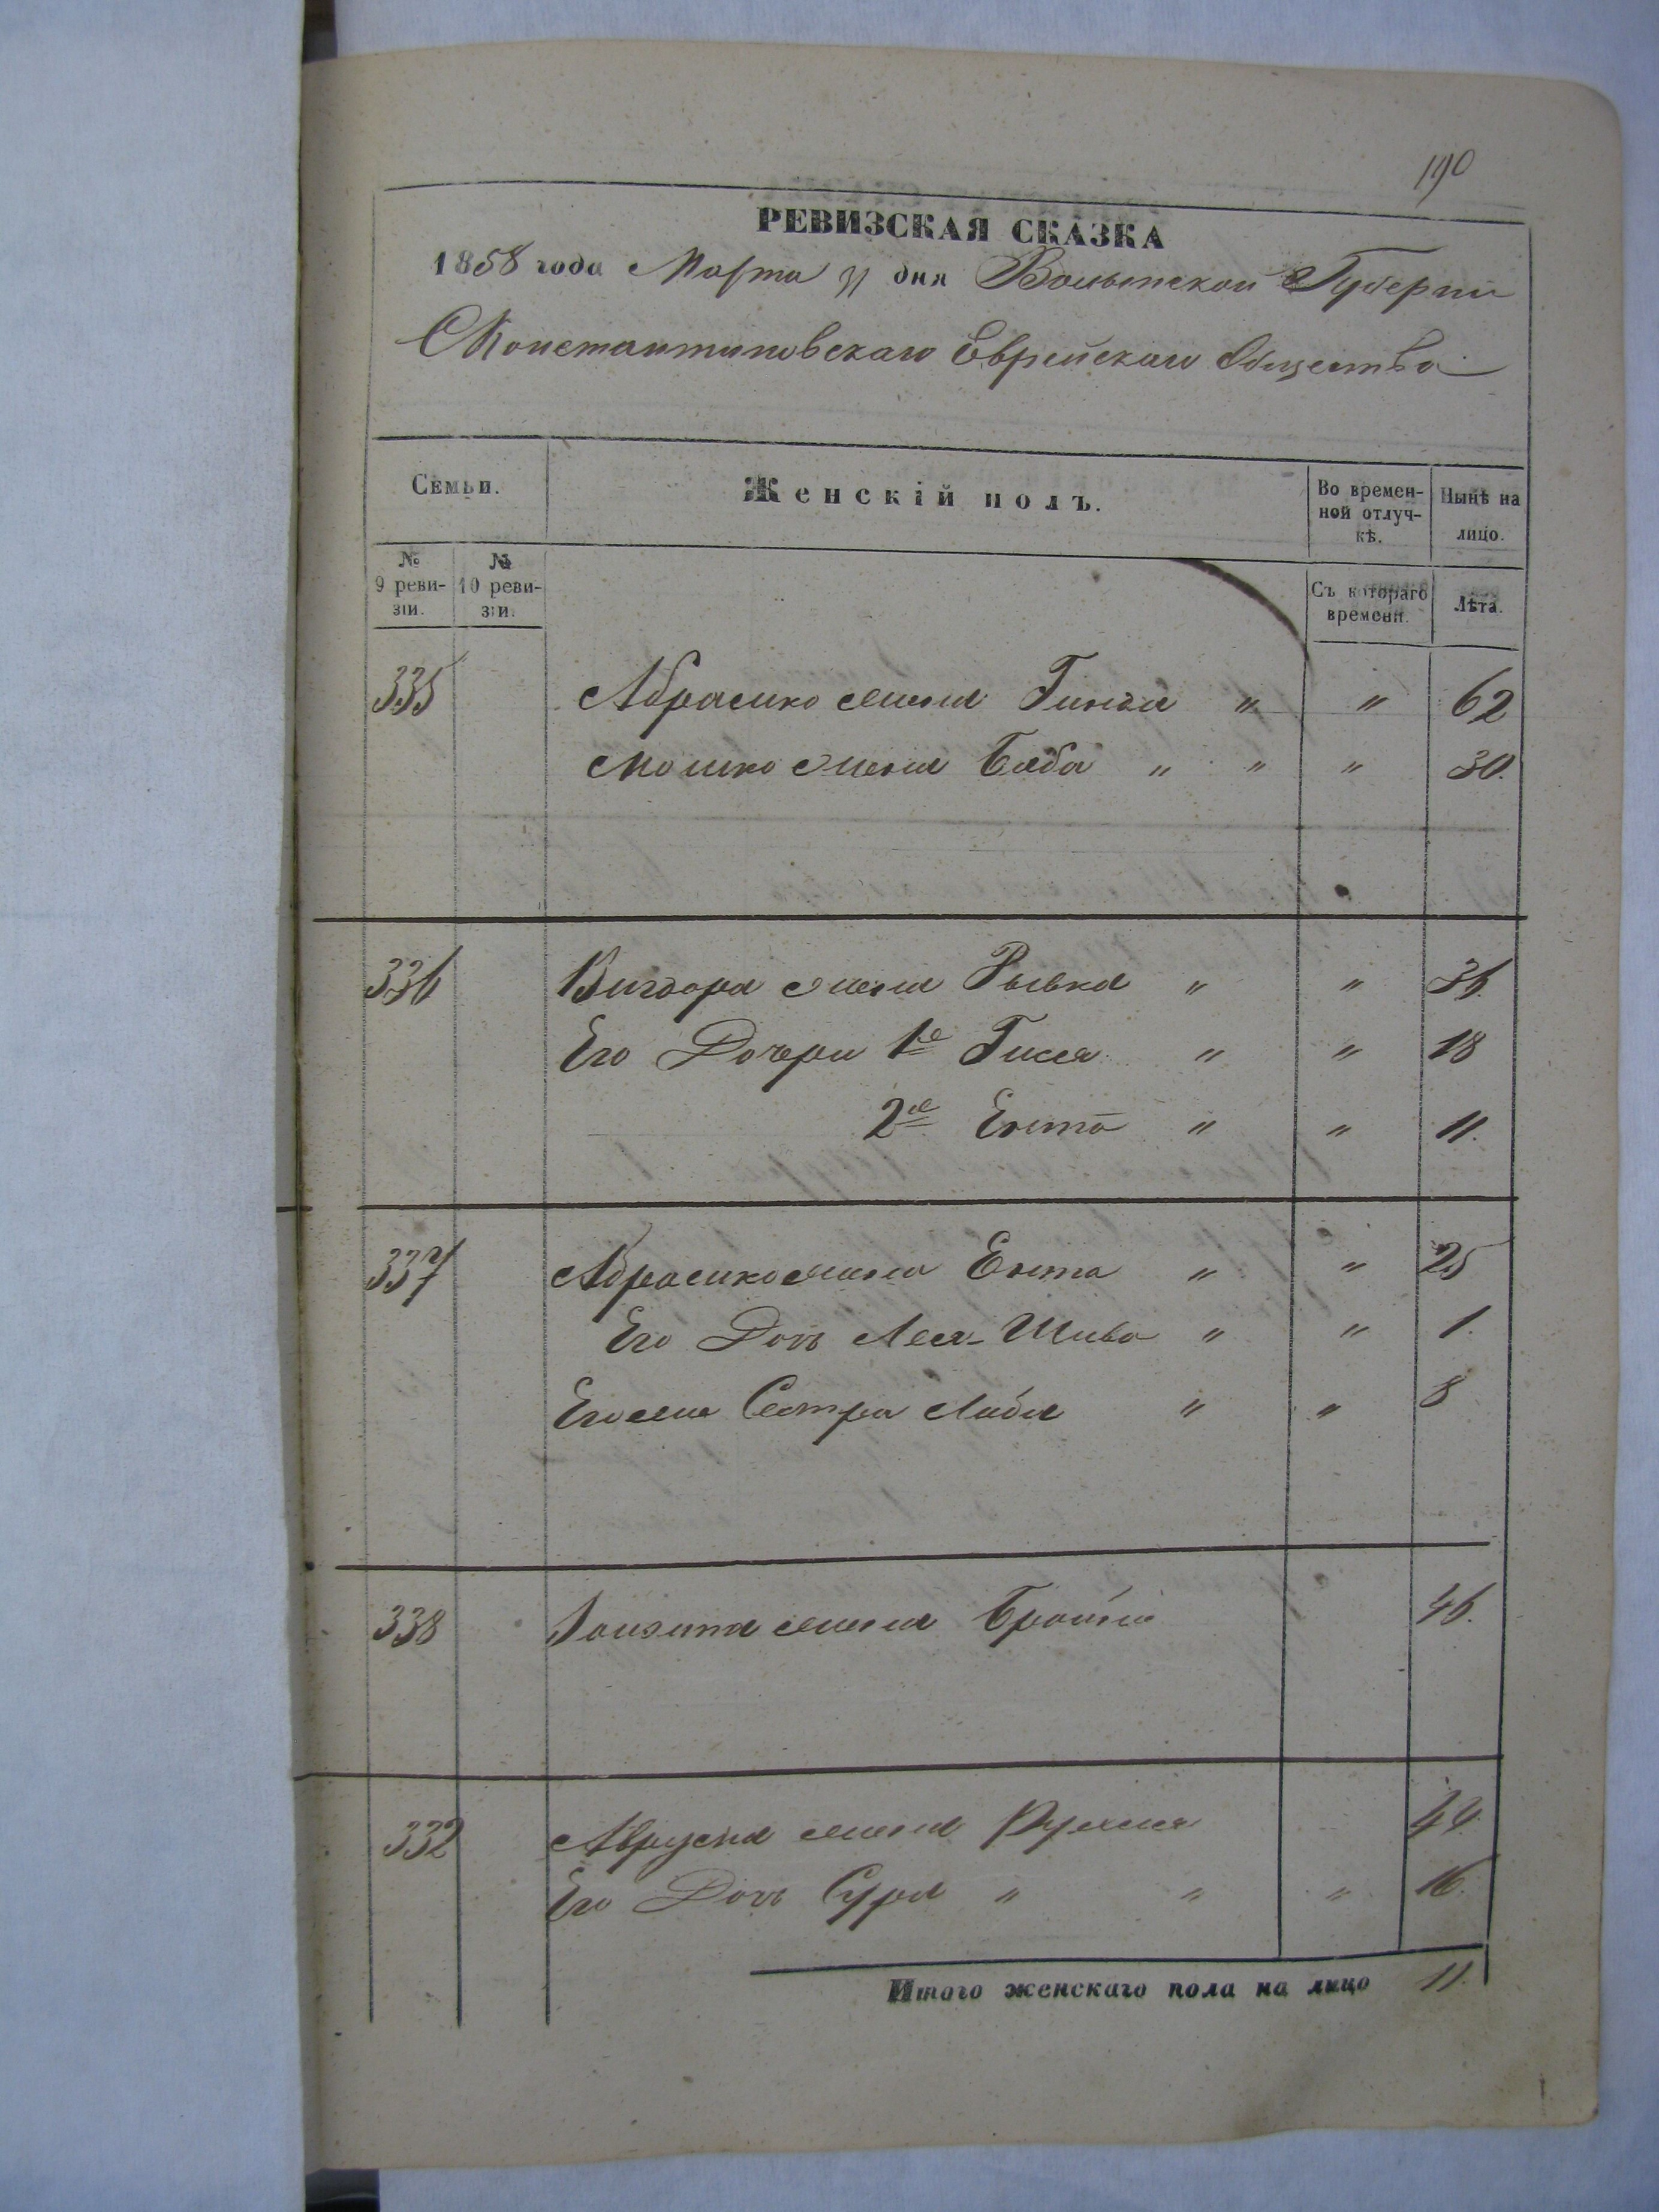 190
РЕВИЗСКАЯ СКАЗКА
1858 года Марта 31 дня Волынской Губернии
Константиновскаго Еврейскаго Общества
Семьи.
Женскій полъ.
Во времен-
ной отлуч-
кѣ.
Нынѣ на
лицо.
№
9 реви-
зіи.
№
10 реви-
зіи.
Съ котораго
времени.
Лѣта.
335 Абрамко жена Гинда " " 62
Мошко жена Баба " " " 30.
336 Вигдора жена Рывка " " 36.
Его Дочери 1я Гися " " 18
2я Ента " " 11.
337 Абрамко жена Ента " " 25
Его Дочь Лея-Шива " " 1.
Его же Сестра " " 8
338 жена 46.
332 жена 44.
Его Дочь Сура " " " 16.
Итого женскаго пола на лицо 11.